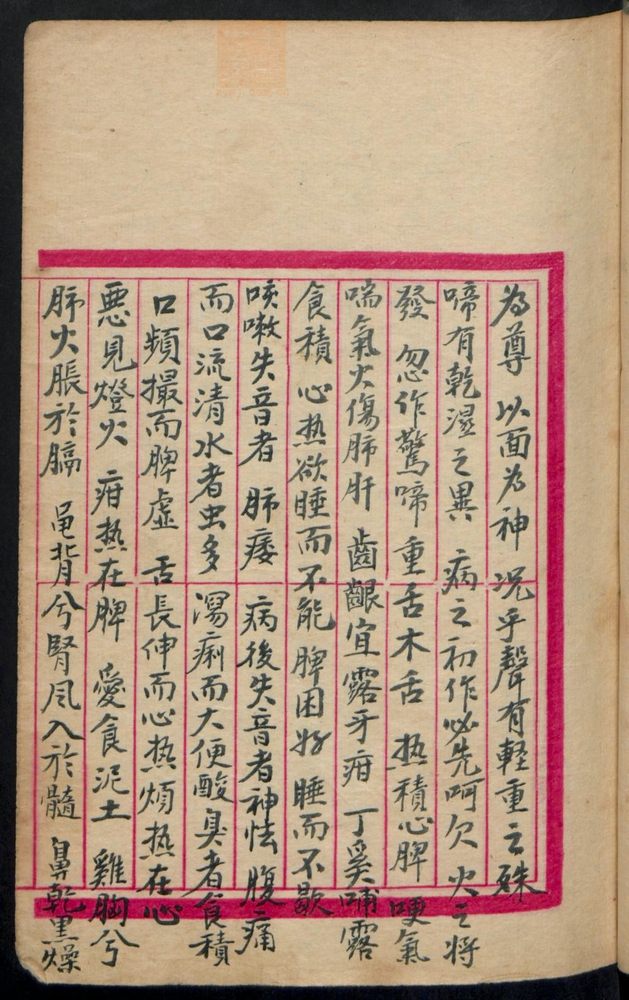 为尊 以面为神 况乎聲有輕重之殊
啼有乾湿之異 病之初作必先呵欠 火之将
發 忽作驚啼 重舌木舌 热積心脾 哽氣
喘氣火傷肺肝 齒齦宣露牙疳 丁奚哺露
食積 心热欲睡而不能 脾困好睡而不歇
咳嗽失音者 肺痿 病後失音者神怯 腹痛
而口流清水者虫多 瀉痢而大便酸臭者食積
口頻撮而脾虚 舌長伸而心热 煩热在心
悪見燈火 疳热在脾 愛食泥土 雞胸兮
肺火脹於膈 黾背兮腎风入於髓 鼻乾黒燥